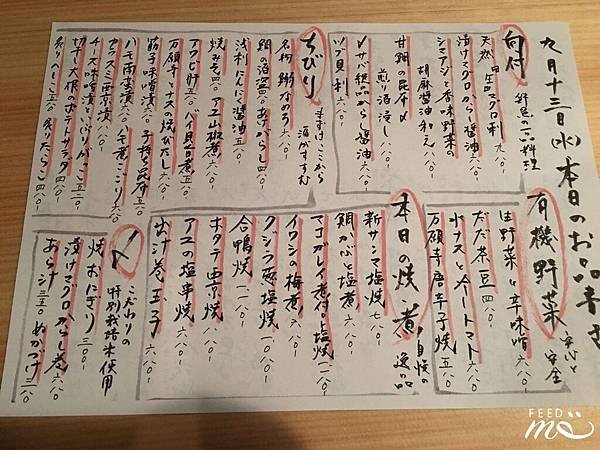 九月十三日(水)本日のお品書き
向付
鮮魚の一品料理
天然生マグロ刺 九八〇-
漬けマグロからし醤油 八八〇-
シマアジと香味野菜の
胡麻醤油和え 八八〇-
甘鯛の昆布〆
煎り酒浸し
〆サバ粗品からし醤油 六八〇-
ツブ貝刺 六八〇-
ちびり
まずはここから
酒がすすむ
名物 鯵なめろう 六八〇-
鯛の酒盗あぶらし 四八〇-
浅利にんにく醤油 五八〇-
焼みそ 四八〇-
アユ山椒煮 六八〇-
アワビ肝 五八〇-
バイ貝旨煮 五八〇-
万願寺とナスの焼びたし 六八〇-
筋子味噌漬 六八〇-
子持ち昆布 五八〇-
ハモ南蛮漬 六八〇-
ハモ煮こごり 六八〇-
カラスミ西京漬 六八〇-
チーズ味噌漬といぶりがっこ 五八〇-
切干大根のポテトサラダ 四八〇-
炙りへしこ 五八〇-
炙りたらこ 四八〇-
有機野菜
安心と
安全
生野菜と辛味噌 六八〇-
だだ茶豆 四八〇-
水ナスと冷トマト 六八〇-
万願寺唐辛子焼 五八〇-
本日の焼、煮
自慢の
逸品
新サンマ塩焼 七八〇-
鯛かぶと塩煮 八八〇-
マコガレイ煮付 or 塩焼 一〇八〇-
イワシの梅煮 六八〇-
クジラ葱塩焼 一〇八〇-
合鴨焼 一一八〇-
ホタテ西京焼 八八〇-
アユの塩串焼 六八〇-
出汁巻玉子 六八〇-
〆
こだわりの
特別栽培米使用
焼おにぎり 三〇〇-
漬けマグロかっぱ巻 六八〇-
あら汁 三五〇-
ぬかづけ 三八〇-
FEED
me